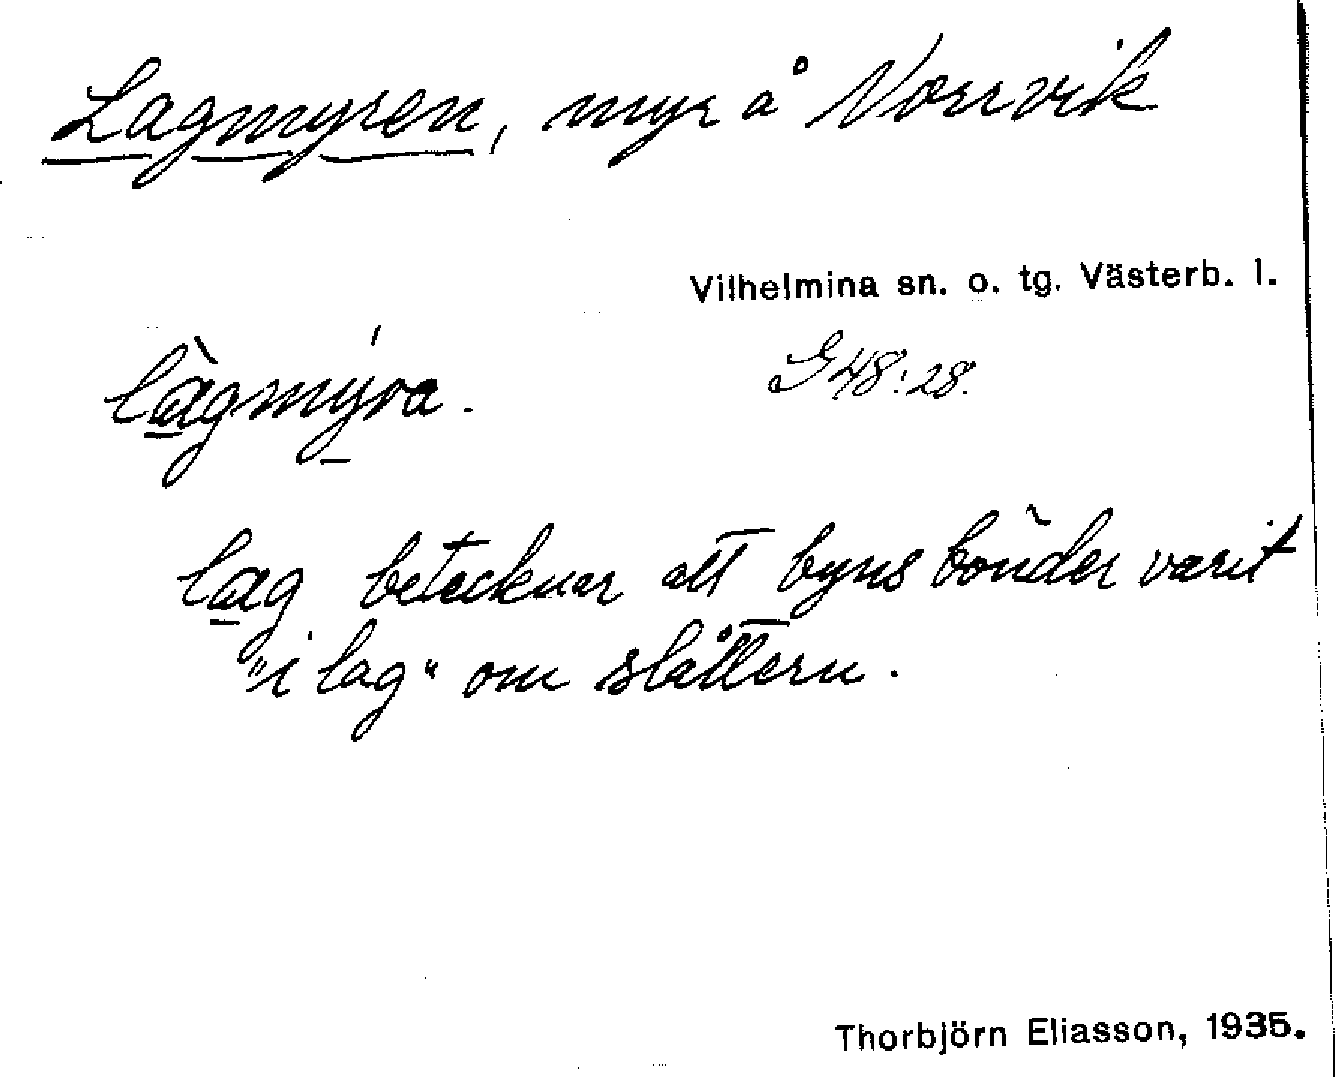 Lagmyren, myr å Norrvik
Vilhelmina sn. o. tg. Västerb. l.
làgmýra.
G 48:28.
lag betecknar att byns bönder varit
"i lag" om slåttern.
Thorbjörn Eliasson, 1935.